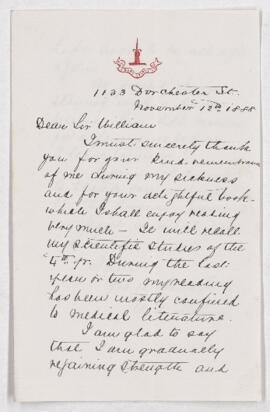 1133 Dorchester St.
November 12th 1888
Dear Sir William
I must sincerely thank
you for your kind remembrance
of me during my sickness
and for your delightful book-
which I shall enjoy reading
very much - It will recall
my scientific studies of the
yr. During the last
year or two my reading
has been mostly confined
to medical literature.
I am glad to say
that I am gradually
regaining strength and